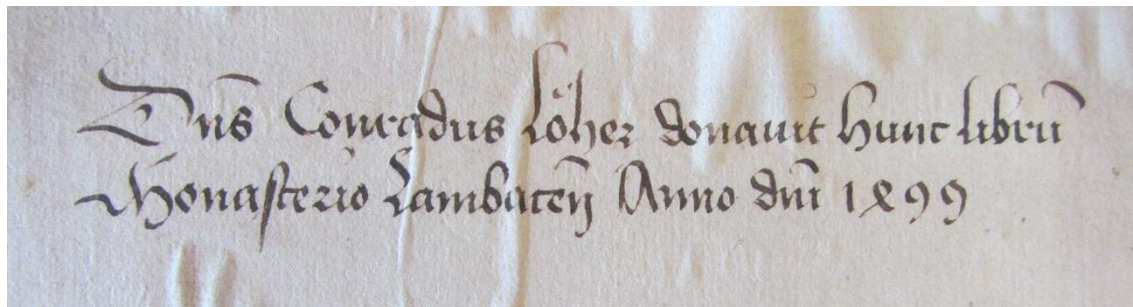 Dn̄s Conradus Löher donauit hunc librū
Monasterio Lambacen̄ Anno dn̄i 1499